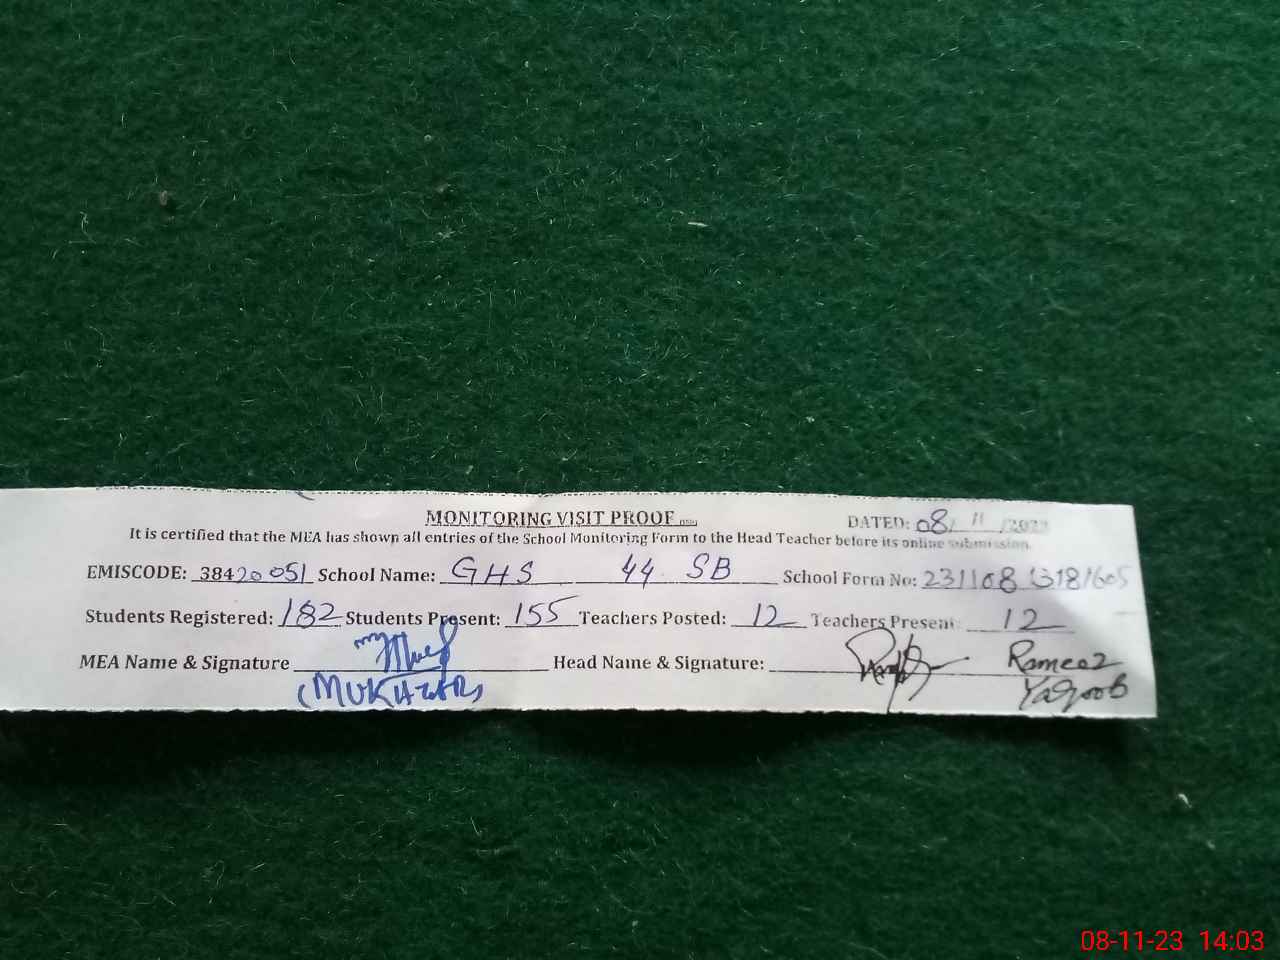 MONITORING VISIT PROOF
DATED: 08/11/2023
It is certified that the MEA has shown all entries of the School Monitoring Form to the Head Teacher before its online submission.
EMISCODE: 38420051 School Name: GHS 44 SB School Form No:
Students Registered: 182 Students Present: 155 Teachers Posted: 12 Teachers Present: 12
MEA Name & Signature Head Name & Signature: Rameez
(MUKHTAR) Yaqoob
08-11-23 14:03